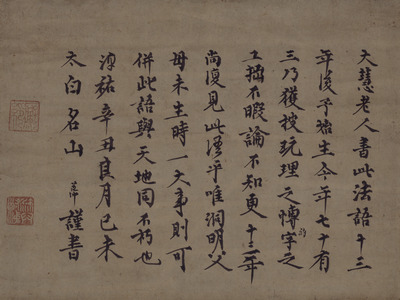 大慧老人書此法語十三
年後予始生今年七十有
三乃獲披玩理之字之
工拙不暇論不知更十三年
尚復見此乎唯洞明父
母未生時一文事則可
併此語與天地同不朽也
淳祐辛丑良月己未
太白名山 謹書